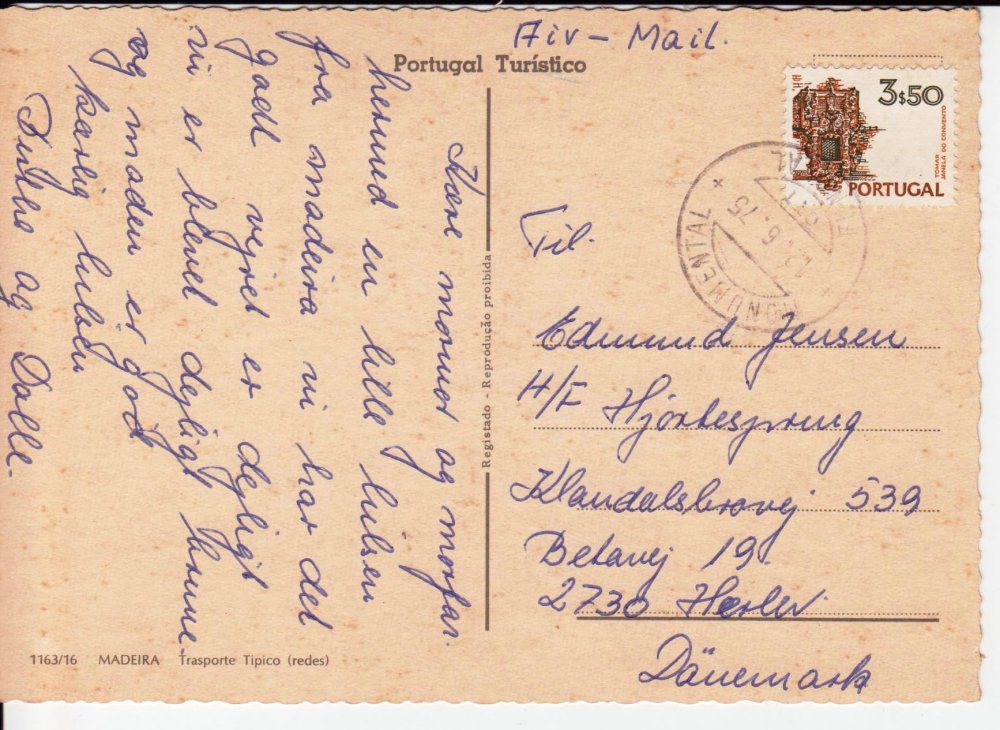 Air - Mail.
Portugal Turístico
3$50
TOMAR
JANELA DO CONVENTO
PORTUGAL
MONUMENTAL
.6.75
Kære mormor og morfar.
hermed en lille hilsen
fra madeira vi har det
godt vejret er dejligt
vi er blevet dejligt brune
og maden er god
kærlig hilsen
og Dolle.
Registado - Reprodução proibida
Til.
Edmund Jensen
H/F Hjortespring
Klaudalsbrovej 539
Betavej 19.
2730 Herlev
Dänemark
1163/16 MADEIRA Trasporte Tipico (redes)